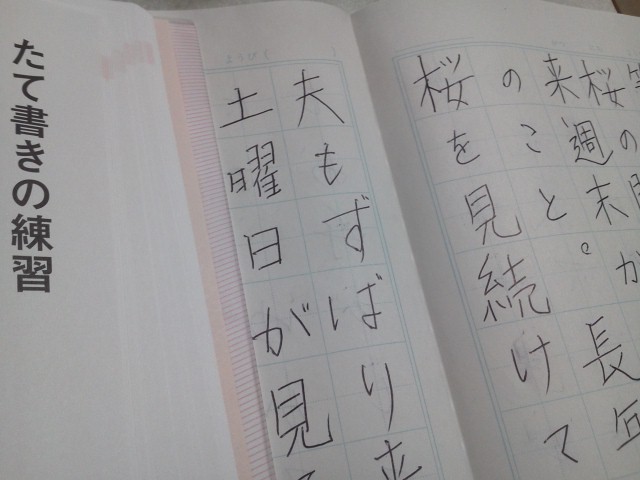 桜の
来週末が
のこと。長
桜を見続けて
夫もずばり来
土曜日が見
たて書きの練習